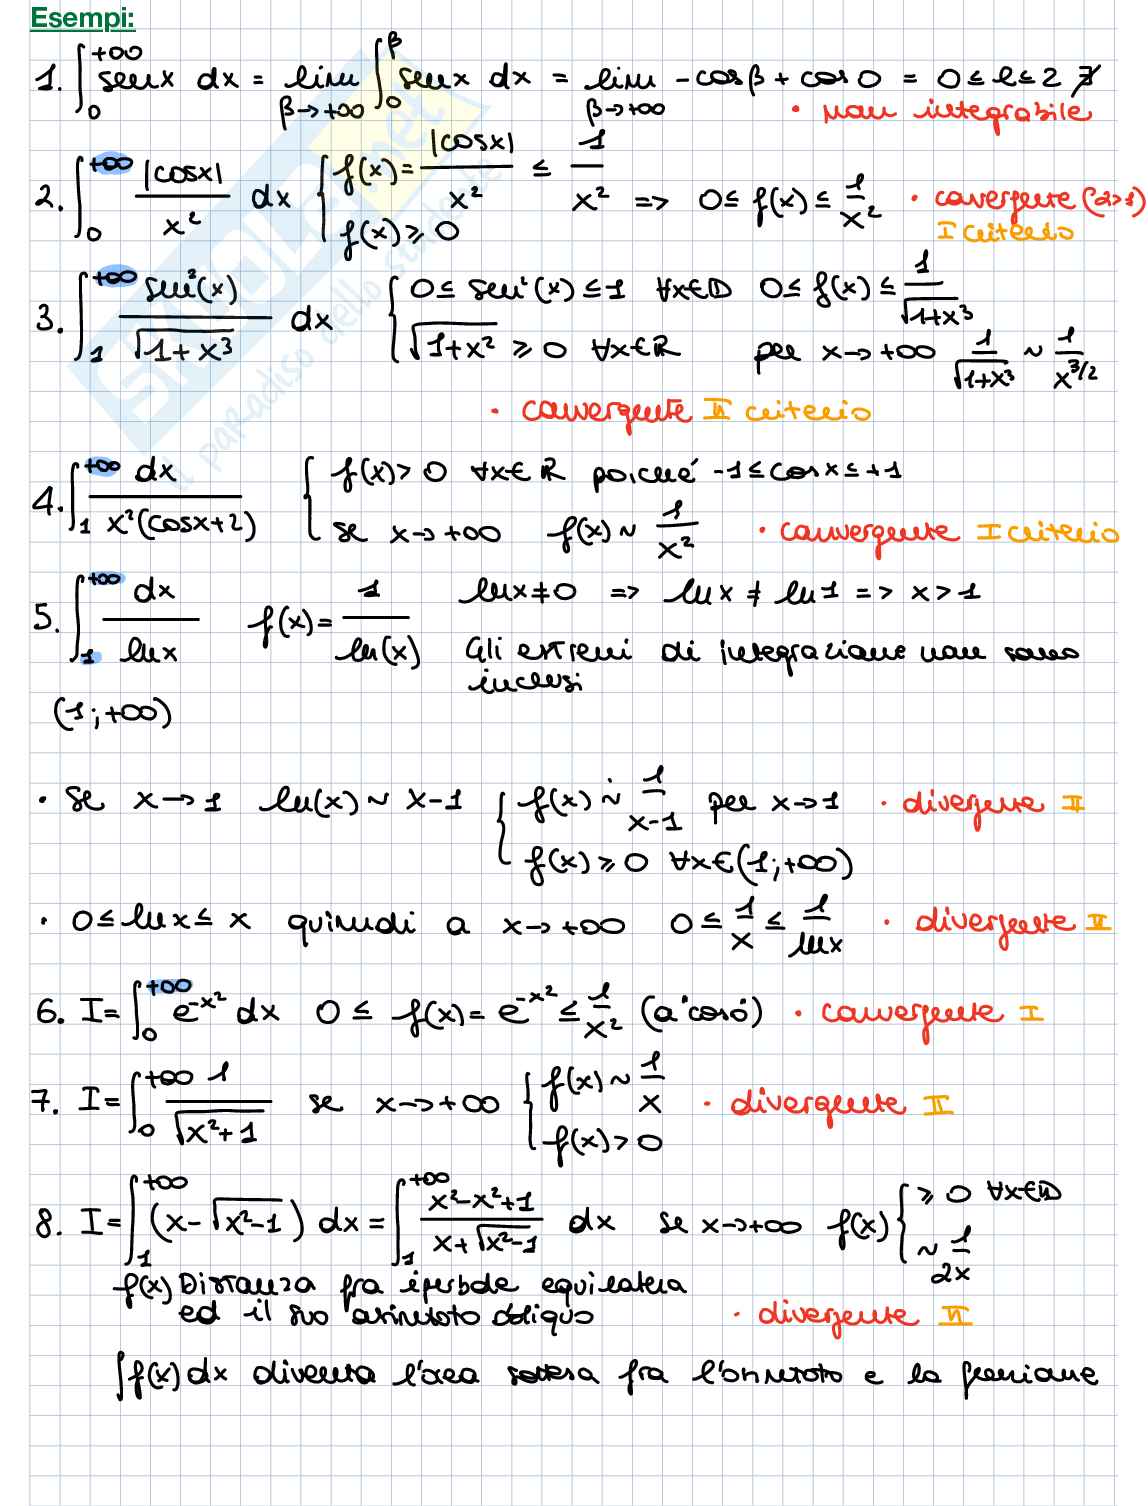 Esempi:
1. ∫₀^{+∞} senx dx = lim_{β→+∞} ∫₀^β senx dx = lim_{β→+∞} -cosβ + cos0 = 0 ≤ l ≤ 2 ∄
• non integrabile
2. ∫₀^{+∞} |cosx|/x² dx { f(x) = |cosx|/x² ≤ 1/x² => 0 ≤ f(x) ≤ 1/x² • convergente (2>1)
f(x) ≥ 0 I criterio
3. ∫₁^{+∞} sen²(x)/√(1+x³) dx { 0 ≤ sen²(x) ≤ 1 ∀x∈D 0 ≤ f(x) ≤ 1/√(1+x³)
√(1+x²) ≥ 0 ∀x∈R per x→+∞ 1/√(1+x³) ~ 1/x^{3/2}
• convergente II criterio
4. ∫₁^{+∞} dx/(x²(cosx+2)) { f(x) > 0 ∀x∈R poiché -1 ≤ cosx ≤ +1
se x→+∞ f(x) ~ 1/x² • convergente I criterio
5. ∫₁^{+∞} dx/lnx f(x) = 1/ln(x) lnx ≠ 0 => lnx ≠ ln1 => x > 1
Gli estremi di integrazione non sono
inclusi
(1;+∞)
• se x→1 ln(x) ~ x-1 { f(x) ~ 1/(x-1) per x→1 • divergente II
f(x) ≥ 0 ∀x∈(1;+∞)
• 0 ≤ lnx ≤ x quindi a x→+∞ 0 ≤ 1/x ≤ 1/lnx • divergente II
6. I = ∫₀^{+∞} e^{-x²} dx 0 ≤ f(x) = e^{-x²} ≤ 1/x² (a casó) • convergente I
7. I = ∫₀^{+∞} 1/√(x²+1) se x→+∞ { f(x) ~ 1/x • divergente II
f(x) > 0
8. I = ∫₁^{+∞} (x-√(x²-1)) dx = ∫₁^{+∞} (x²-x²+1)/(x+√(x²-1)) dx se x→+∞ f(x) { ≥ 0 ∀x∈D
~ 1/2x
f(x) Distanza fra iperbole equilatera
ed il suo asintoto obliquo • divergente II
∫f(x)dx diventa l'area sottesa fra l'asintoto e la funzione